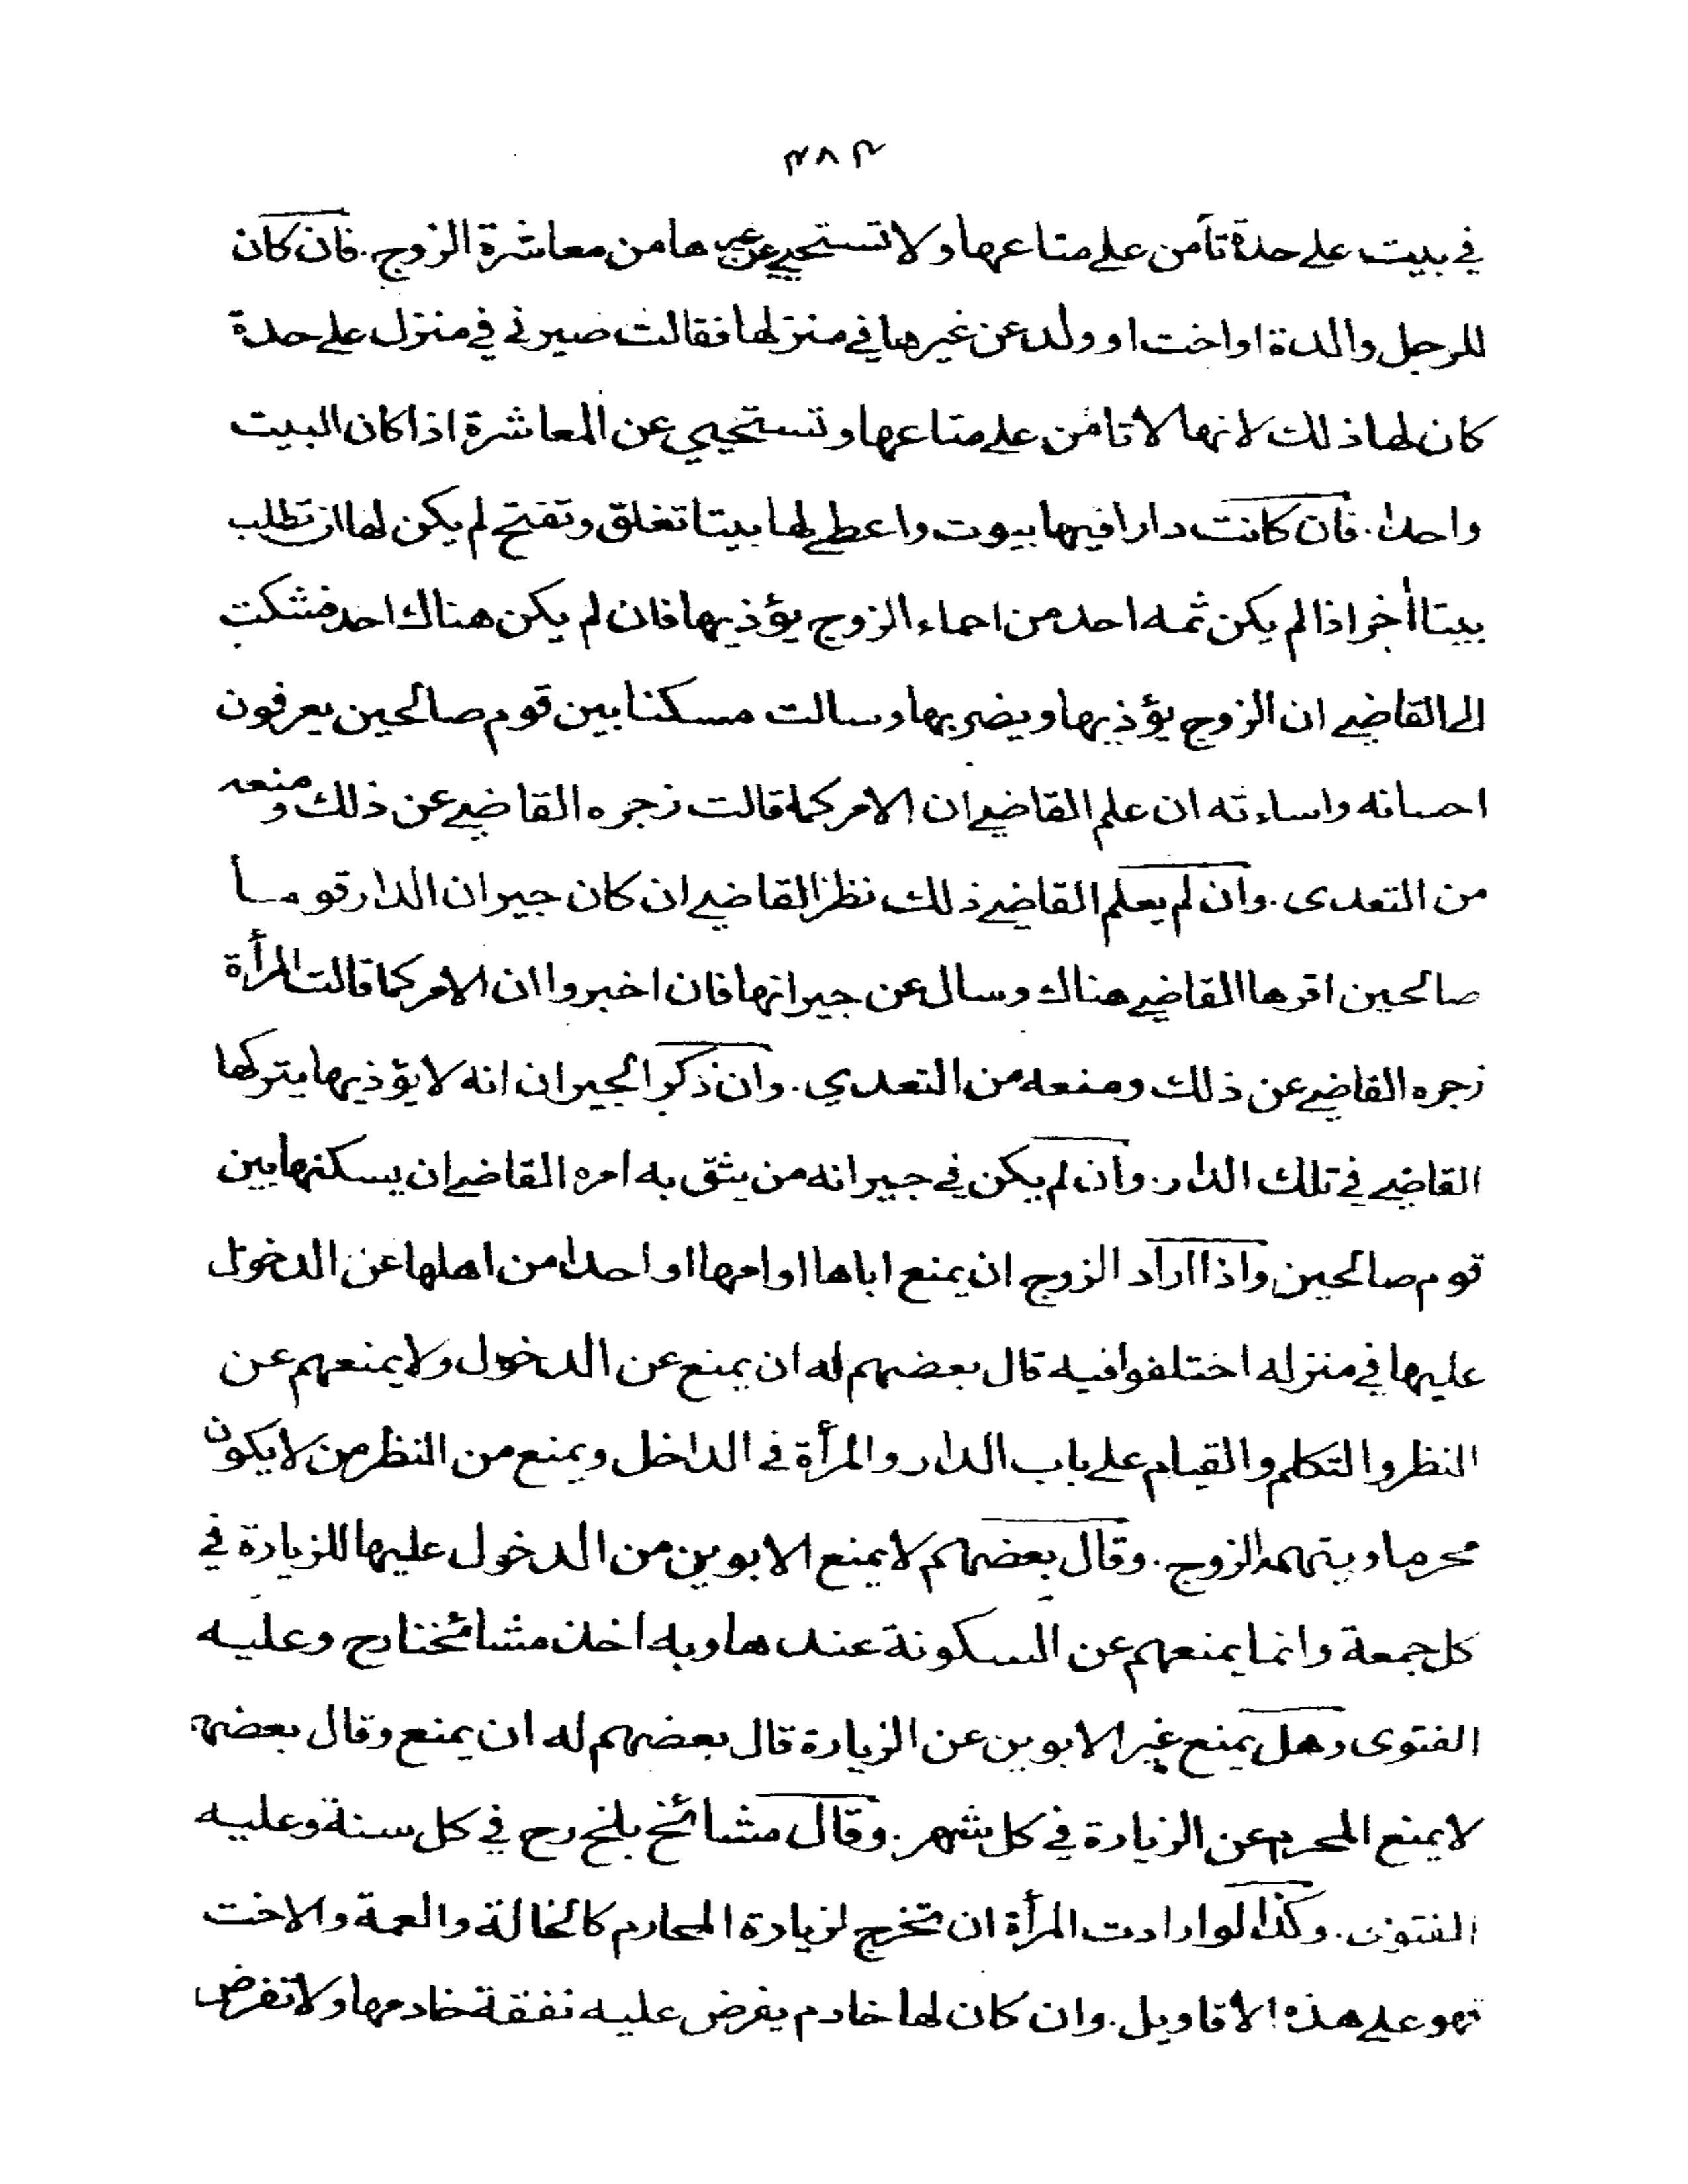 في بيت على حدة تأمن على متاعها ولا تستحيي عن غيرها من معاشرة الزوج. فان كان
للرجل والدة او اخت او ولد عن غيرها في منزلها فقالت صيرني في منزل على حدة
كان لها ذلك لانها لا تامن على متاعها وتستحيي عن المعاشرة اذا كان البيت
واحدا. فان كانت دارا فيها بيوت واعطى لها بيتا تغلق وتفتح لم يكن لها ان تطلب
بيتا أخر اذا لم يكن ثمه احد من احماء الزوج يؤذيها فان لم يكن هناك احد فشكت
الى القاضي ان الزوج يؤذيها ويضربها وسالت مسكنا بين قوم صالحين يعرفون
احسانه واساءته ان علم القاضي ان الامر كما قالت زجره القاضي عن ذلك ومنعه
من التعدى. وان لم يعلم القاضي ذلك نظر القاضي ان كان جيران الدار قوما
صالحين اقرها القاضي هناك وسال عن جيرانها فان اخبروا ان الامر كما قالت المرأة
زجره القاضي عن ذلك ومنعه من التعدي. وان ذكر الجيران انه لا يؤذيها يتركها
القاضي في تلك الدار. وان لم يكن في جيرانه من يثق به امره القاضي ان يسكنها بين
قوم صالحين واذا اراد الزوج ان يمنع اباها او امها او احدا من اهلها عن الدخول
عليها في منزله اختلفوا فيه قال بعضهم له ان يمنع عن الدخول ولا يمنعهم عن
النظر والتكلم والقيام على باب الدار والمرأة في الداخل ويمنع من النظر من لا يكون
محرما ويتهمه الزوج. وقال بعضهم لا يمنع الابوين من الدخول عليها للزيارة في
كل جمعة وانما يمنعهم عن السكونة عندها وبه اخذ مشائخنا رح وعليه
الفتوى وهل يمنع غير الابوين عن الزيارة قال بعضهم له ان يمنع وقال بعضهم
لا يمنع المحرم عن الزيارة في كل شهر. وقال مشائخ بلخ رح في كل سنة وعليه
الفتوى. وكذا لو ارادت المرأة ان تخرج لزيارة المحارم كالخالة والعمة والاخت
فهو على هذه الاقاويل. وان كان لها خادم يفرض عليه نفقة خادمها ولا تفرض